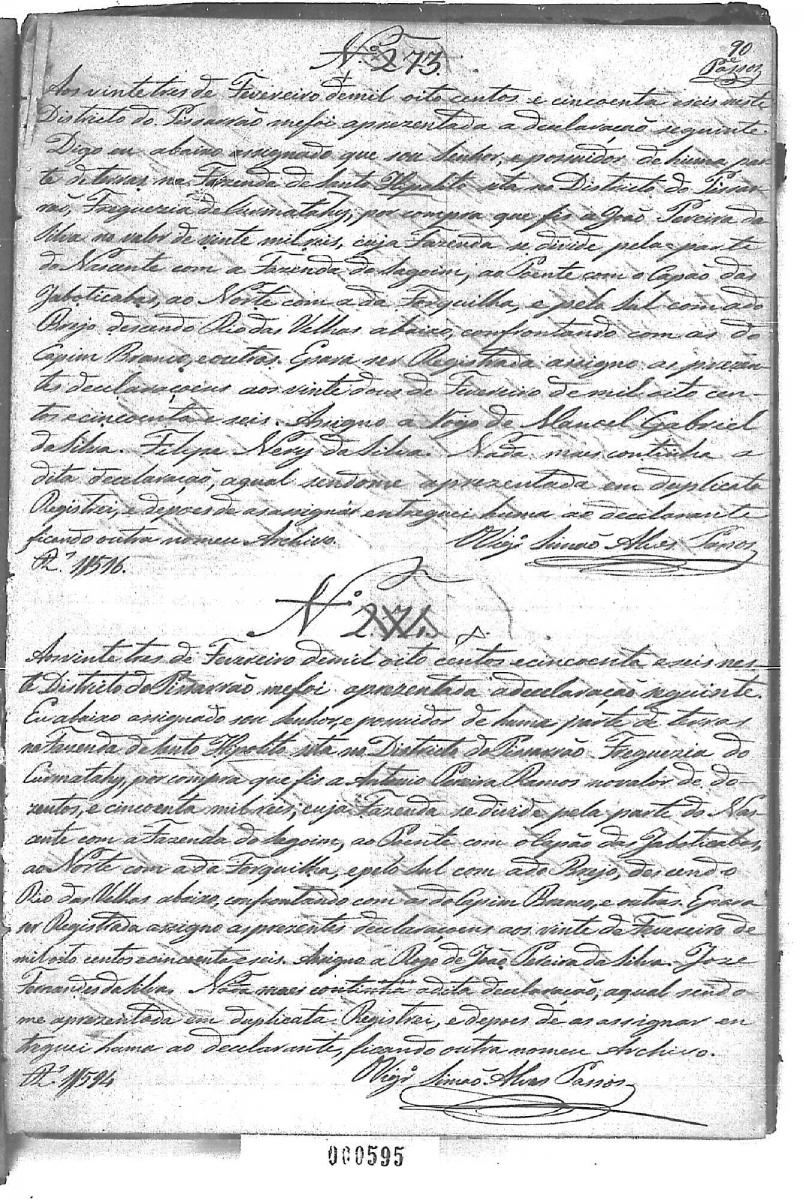 90
Passos
N.º 273.
Aos vinte tres de Fevereiro de mil oito centos e cincoenta e seis neste
Districto do Pissarrão me foi aprezentada a declaração seguinte.
Digo eu abaixo assignado que sou Senhor, e possuidor de huma par
te de terras na Fazenda de Santo Hipolito sita no Districto do Pissar
rão, Freguezia de Curmatahy, por compra que fis a João Pereira da
Silva no valor de vinte mil reis, cuja Fazenda se divide pela parte
do Nascente com a Fazenda do Lagoim, ao Poente com o Capão das
Jaboticabas, ao Norte com a da Forquilha, e pelo Sul com a do
Brejo descendo Rio das Velhas abaixo, confrontando com as do
Capim Branco, e outras. E para ser Registrada assigno as prezen
tes declaraçoens aos vinte dous de Fevereiro de mil oito cen
tos e cincoenta e seis. Assigno a Rogo de Manoel Gabriel
da Silva. Felipe Nery da Silva. Nada mais continha a
dita declaração, a qual sendome aprezentada em duplicata
Registrei, e depois de as assignar entreguei huma ao declarante
ficando outra no meu Archivo. O Vigrº Simão Alves Passos
R.º 1$516.
N.º 274.
Aos vinte tres de Fevereiro de mil oito centos e cincoenta e seis nes
te Districto do Pissarrão me foi aprezentada a declaração seguinte.
Eu abaixo assignado sou Senhor, e possuidor de huma parte de terras
na Fazenda de Santo Hipolito sita no Districto do Pissarrão Freguezia do
Curmatahy, por compra que fis a Antonio Pereira Ramos no valor de du
zentos, e cincoenta mil reis, cuja Fazenda se divide pela parte do Nas
cente com a Fazenda do Lagoim, ao Poente com o Capão das Jaboticabas,
ao Norte com a da Forquilha, e pelo Sul com a do Brejo, descendo
Rio das Velhas abaixo, confrontando com as do Capim Branco, e outras. E para
ser Registrada assigno as prezentes declaraçoens aos vinte de Fevereiro de
mil oito centos e cincoenta e seis. Assigno a Rogo de João Pereira da Silva. Joze
Fernandes da Silva. Nada mais continha a dita declaração, a qual sendo
me aprezentada em duplicata Registrei, e depois de as assignar en
treguei huma ao declarante, ficando outra no meu Archivo.
R.º 1$594 O Vigrº Simão Alves Passos
000595